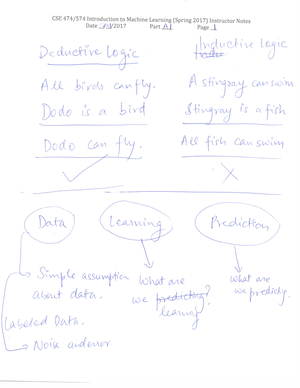 CSE 474/574 Introduction to Machine Learning (Spring 2017) Instructor Notes
Date /2017 Part A1 Page 1
Deductive Logic
All birds can fly.
Dodo is a bird
Dodo can fly.
Inductive Logic
A stingray can swim
Stingray is a fish
All fish can swim
Data
Learning
Prediction
Simple assumption
about data.
Labeled Data.
Noise and error
What are
we predicting?
learning
What are
we predictg.